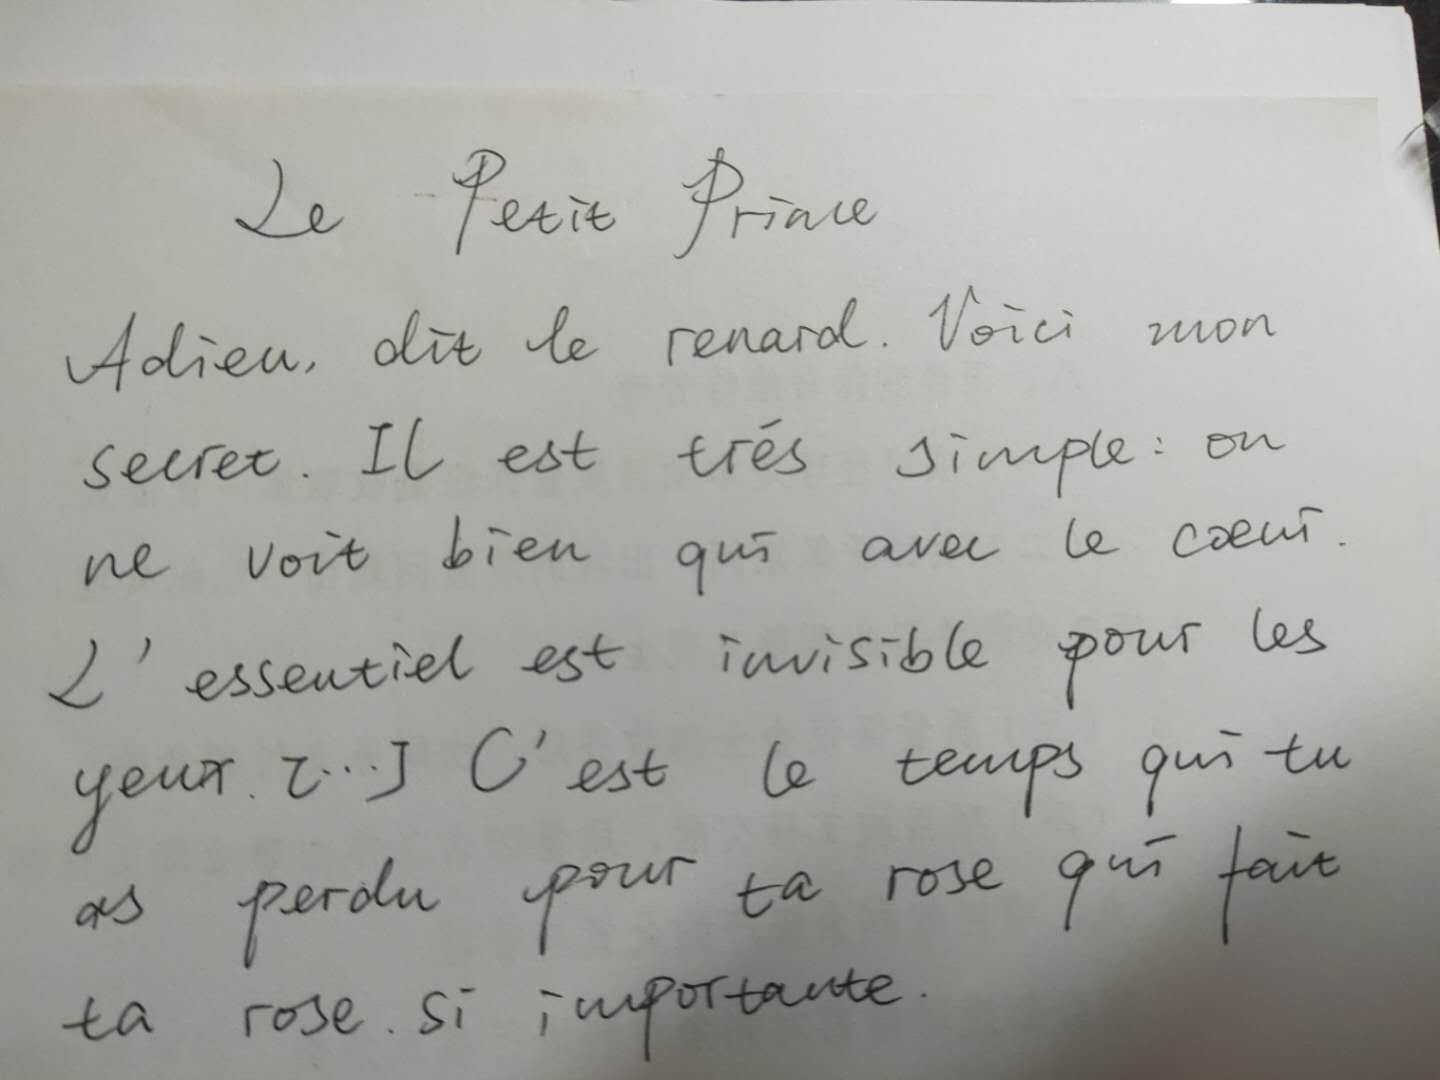 Le Petit Prince
Adieu, dit le renard. Voici mon
secret. Il est trés simple: on
ne voit bien qui avec le cœur.
L'essentiel est invisible pour les
yeux. [...] C'est le temps qui tu
as perdu pour ta rose qui fait
ta rose. si importante.